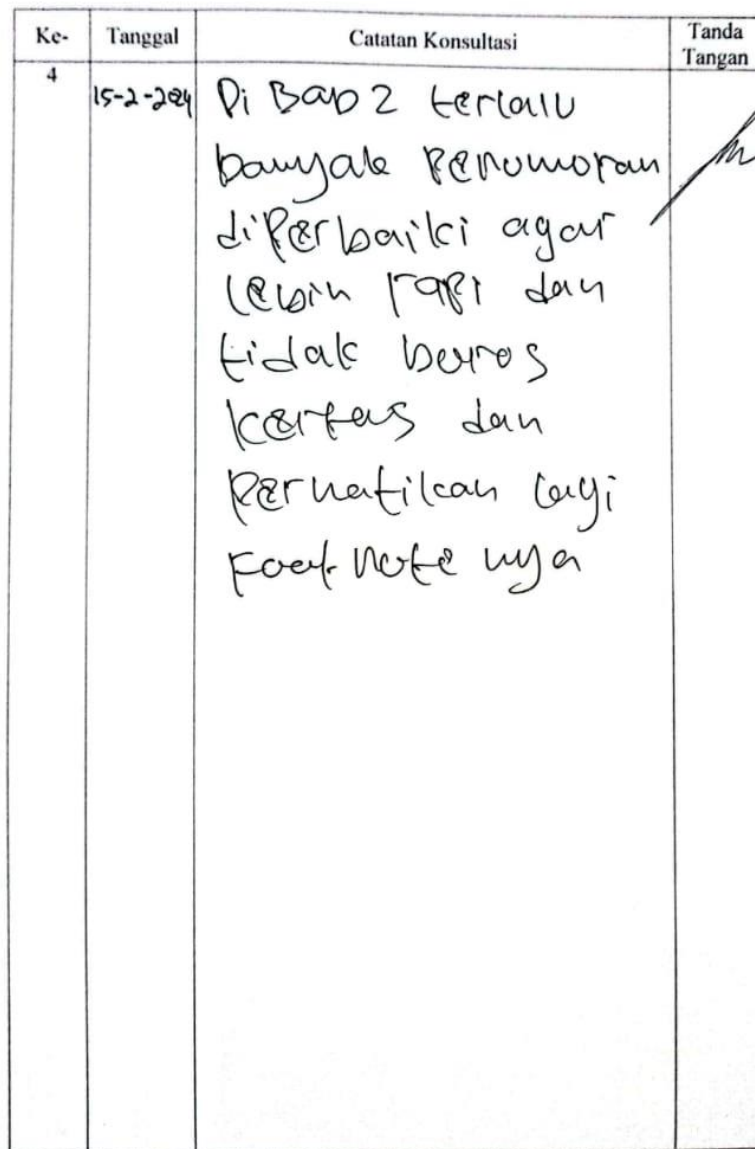 Ke- Tanggal Catatan Konsultasi Tanda Tangan
4 15-2-2024 Di Bab 2 terlalu
banyak Penomoran
diPerbaiki agar
lebih rapi dan
tidak boros
kertas dan
Perhatikan lagi
Footnote nya